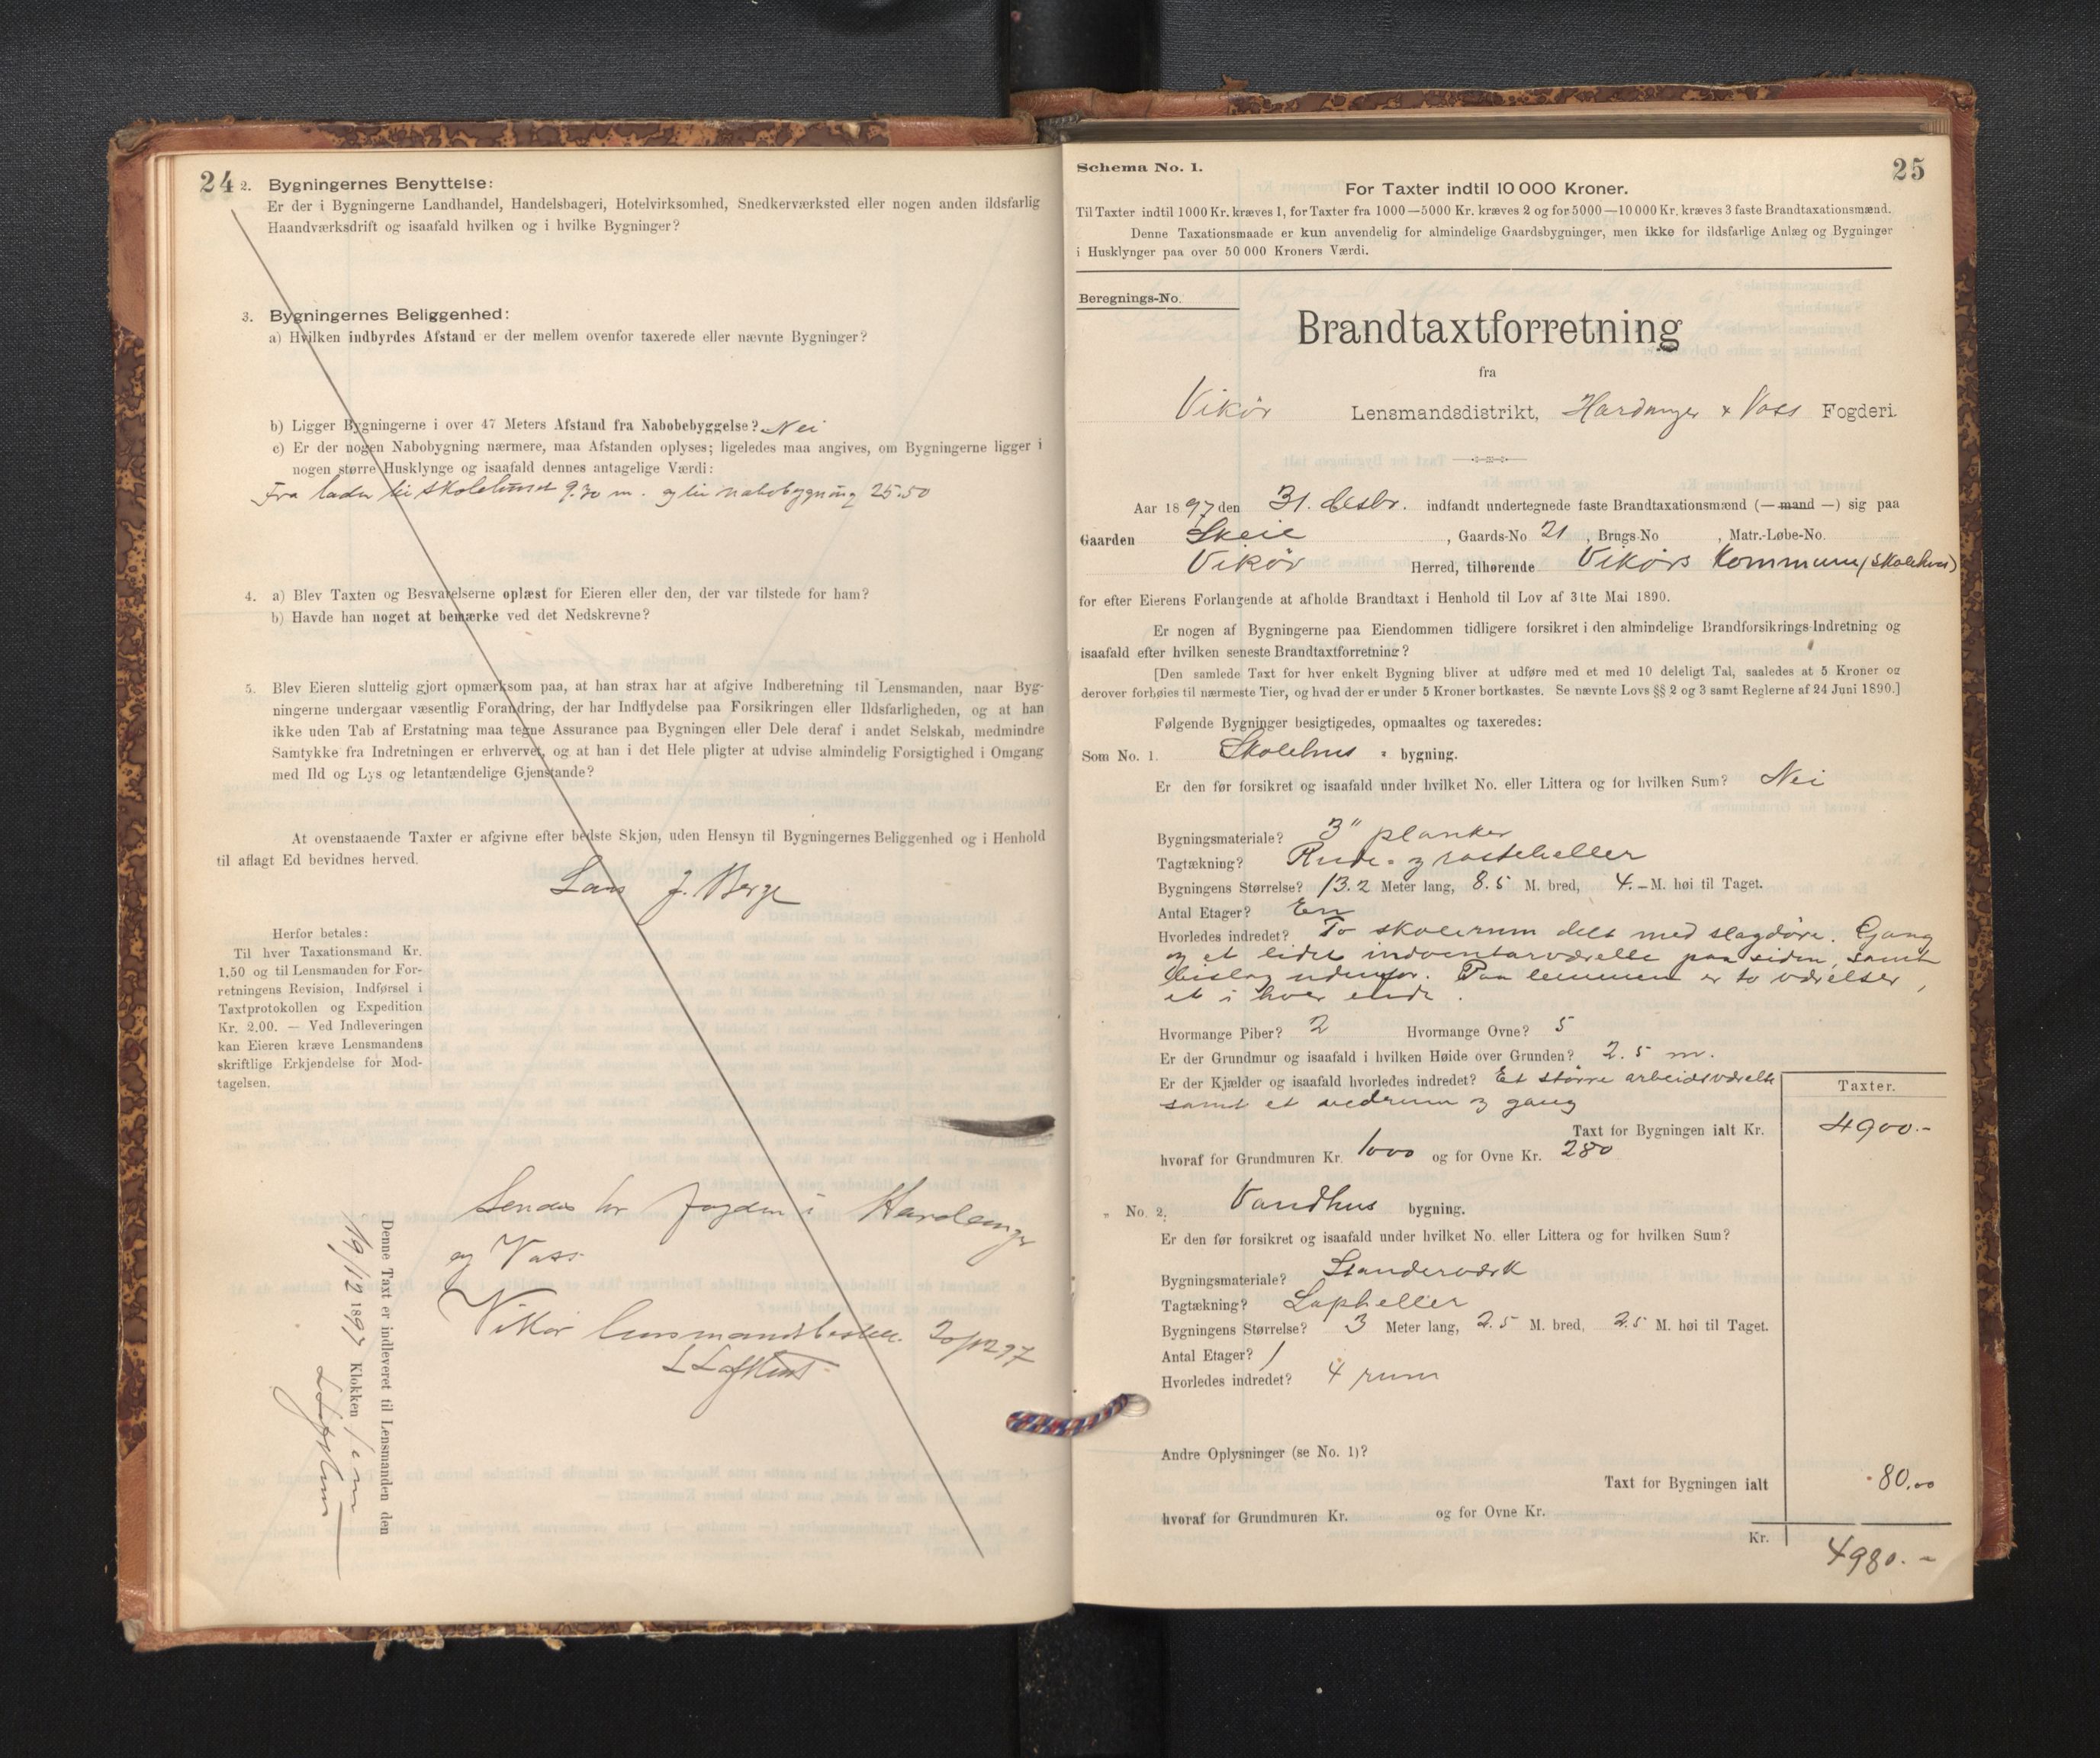 24
2. Bygningernes Benyttelse:
Er der i Bygningerne Landhandel, Handelsbageri, Hotelvirksomhed, Snedkerværksted eller nogen anden ildsfarlig
Haandværksdrift og isaafald hvilken og i hvilke Bygninger?
3. Bygningernes Beliggenhed:
a) Hvilken indbyrdes Afstand er der mellem ovenfor taxerede eller nævnte Bygninger?
b) Ligger Bygningerne i over 47 Meters Afstand fra Nabobebyggelse? Nei
c) Er der nogen Nabobygning nærmere, maa Afstanden oplyses; ligeledes maa angives, om Bygningerne ligger i
nogen større Husklynge og isaafald dennes antagelige Værdi:
Fra laden til skolehuset 9.30 m. og til nabobygning 25.50
4. a) Blev Taxten og Besvarelserne oplæst for Eieren eller den, der var tilstede for ham?
b) Havde han noget at bemærke ved det Nedskrevne?
5. Blev Eieren sluttelig gjort opmærksom paa, at han strax har at afgive Indberetning til Lensmanden, naar Byg-
ningerne undergaar væsentlig Forandring, der har Indflydelse paa Forsikringen eller Ildsfarligheden, og at han
ikke uden Tab af Erstatning maa tegne Assurance paa Bygningen eller Dele deraf i andet Selskab, medmindre
Samtykke fra Indretningen er erhvervet, og at han i det Hele pligter at udvise almindelig Forsigtighed i Omgang
med Ild og Lys og letantændelige Gjenstande?
At ovenstaaende Taxter er afgivne efter bedste Skjøn, uden Hensyn til Bygningernes Beliggenhed og i Henhold
til aflagt Ed bevidnes herved.
Lars J. Berge
Herfor betales:
Til hver Taxationsmand Kr.
1.50 og til Lensmanden for For-
retningens Revision, Indførsel i
Taxtprotokollen og Expedition
Kr. 2.00. — Ved Indleveringen
kan Eieren kræve Lensmandens
skriftlige Erkjendelse for Mod-
tagelsen.
Sendes hr Fogden i Hardanger
og Voss
Vikør lensmandsbestill. 20/12 97
Denne Taxt er indleveret til Lensmanden den
19/12 1897 Klokken 1 em
25
Schema No. 1.
For Taxter indtil 10 000 Kroner.
Til Taxter indtil 1000 Kr. kræves 1, for Taxter fra 1000—5000 Kr. kræves 2 og for 5000—10 000 Kr. kræves 3 faste Brandtaxationsmænd.
Denne Taxationsmaade er kun anvendelig for almindelige Gaardsbygninger, men ikke for ildsfarlige Anlæg og Bygninger
i Husklynger paa over 50 000 Kroners Værdi.
Beregnings-No.
Brandtaxtforretning
fra
Vikør Lensmandsdistrikt, Hardanger & Voss Fogderi.
Aar 1897 den 31. desbr. indfandt undertegnede faste Brandtaxationsmænd (— mand —) sig paa
Gaarden Skeie, Gaards-No 21, Brugs-No , Matr.-Løbe-No.
Vikør Herred, tilhørende Vikørs Kommune (Skolehus)
for efter Eierens Forlangende at afholde Brandtaxt i Henhold til Lov af 31te Mai 1890.
Er nogen af Bygningerne paa Eiendommen tidligere forsikret i den almindelige Brandforsikrings-Indretning og
isaafald efter hvilken seneste Brandtaxtforretning?
[Den samlede Taxt for hver enkelt Bygning bliver at udføre med et med 10 deleligt Tal, saaledes at 5 Kroner og
derover forhøies til nærmeste Tier, og hvad der er under 5 Kroner bortkastes. Se nævnte Lovs §§ 2 og 3 samt Reglerne af 24 Juni 1890.]
Følgende Bygninger besigtigedes, opmaaltes og taxeredes:
Som No. 1. Skolehus bygning.
Er den før forsikret og isaafald under hvilket No. eller Littera og for hvilken Sum? Nei
Bygningsmateriale? 3" planker
Tagtækning? Rude- og rasteheller
Bygningens Størrelse? 13.2 Meter lang, 8.5 M. bred, 4.- M. høi til Taget.
Antal Etager? En
Hvorledes indredet? To skolerum delt med slagdøre. Gang
og et lidet inventarværelse paa siden, samt
bislag udenfor. Paa lemmen er to værelser,
et i hver ende.
Hvormange Piber? 2 Hvormange Ovne? 5
Er der Grundmur og isaafald i hvilken Høide over Grunden? 2.5 m.
Er der Kjælder og isaafald hvorledes indredet? Et større arbeidsværelse
samt et vedrum og gang
Taxter.
Taxt for Bygningen ialt Kr. 4900.-
hvoraf for Grundmuren Kr. 1000 og for Ovne Kr. 280
" No. 2. Vandhus bygning.
Er den før forsikret og isaafald under hvilket No. eller Littera og for hvilken Sum?
Bygningsmateriale? Standerværk
Tagtækning? Lapheller
Bygningens Størrelse? 3 Meter lang, 2.5 M. bred, 2.5 M. høi til Taget.
Antal Etager? 1
Hvorledes indredet? 4 rum
Andre Oplysninger (se No. 1)?
Taxt for Bygningen ialt 80.00
hvoraf for Grundmuren Kr. og for Ovne Kr.
Kr. 4980.-